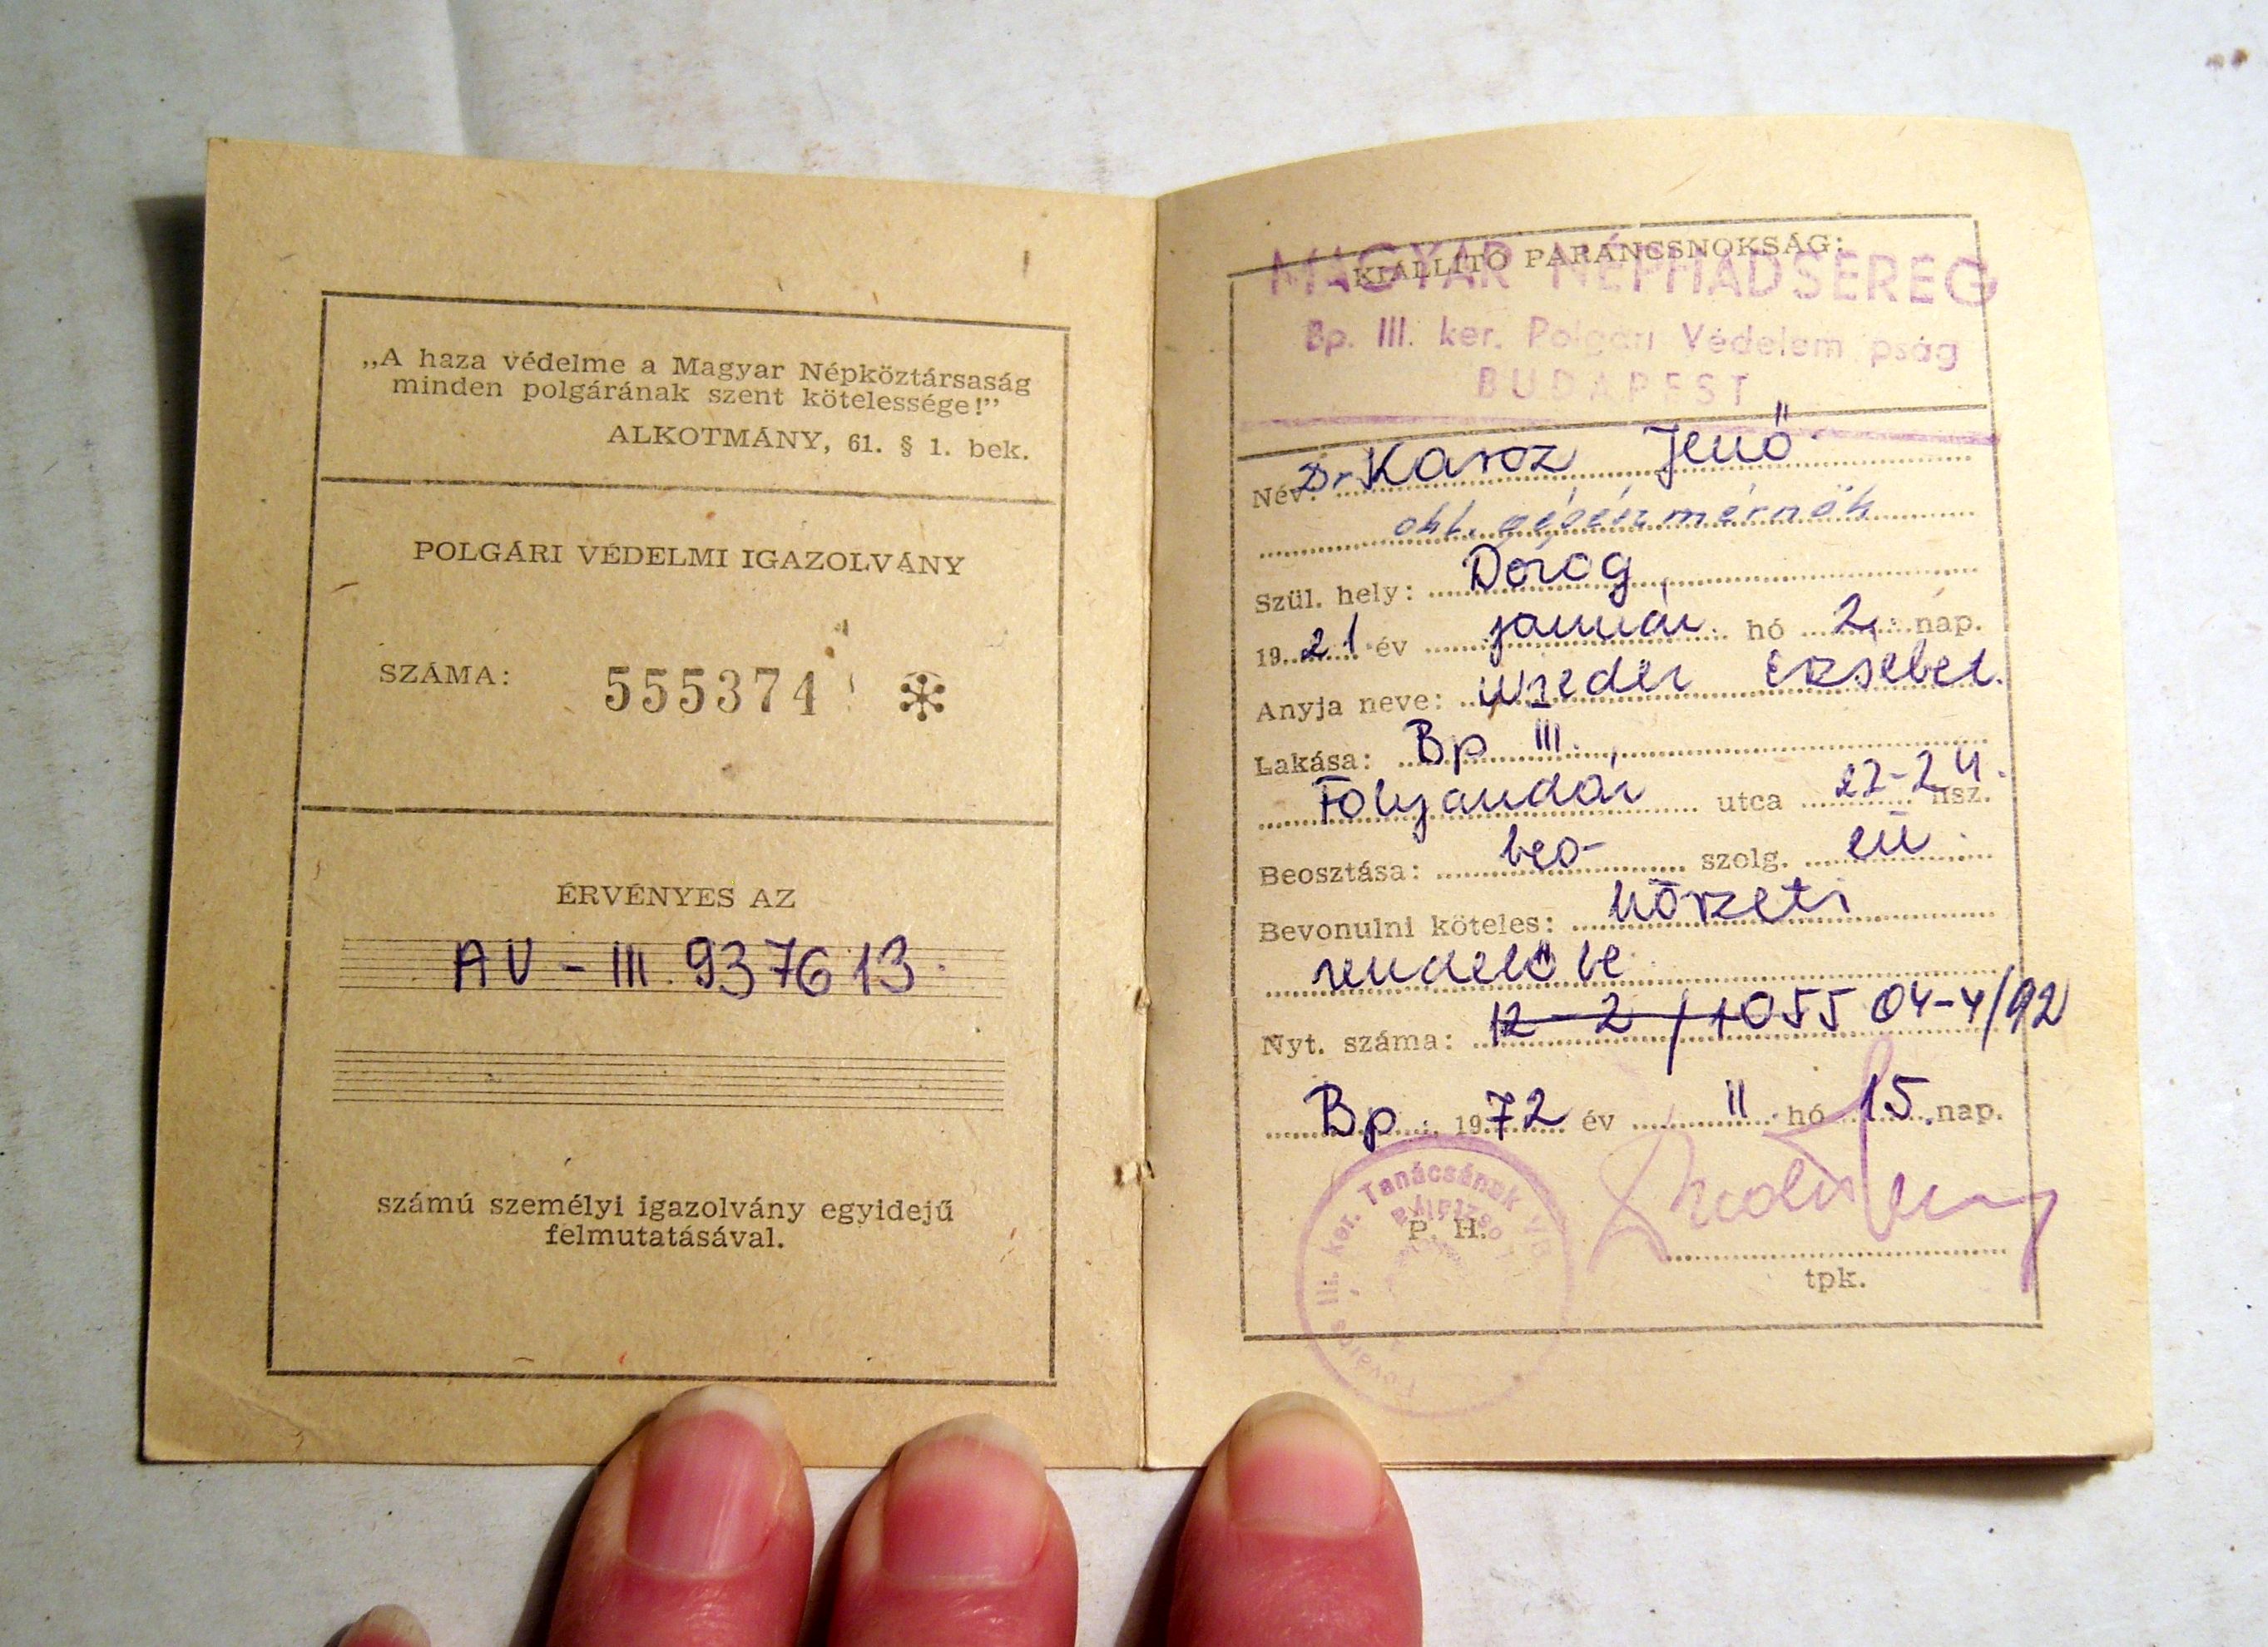 „A haza védelme a Magyar Népköztársaság
minden polgárának szent kötelessége!”
ALKOTMÁNY, 61. § 1. bek.
POLGÁRI VÉDELMI IGAZOLVÁNY
SZÁMA: 555374
ÉRVÉNYES AZ
AU-III. 937613.
számú személyi igazolvány egyidejű
felmutatásával.
KIÁLLÍTÓ PARANCSNOKSÁG:
MAGYAR NÉPHADSEREG
Bp. III. ker. Polgári Védelem pság
BUDAPEST
Név: Dr Karsz Jenő
okl. gépészmérnök
Szül. hely: Dorog,
1921 év január hó 2. nap.
Anyja neve: Erzsébet.
Lakása: Bp III.,
Folyandár utca 22-24. hsz.
Beosztása: beo- szolg. eü.
Bevonulni köteles: körzeti
rendelőbe.
Nyt. száma: 12-2/1055 04-4/92
Bp. 1972 év II hó 15. nap.
III. ker. Tanácsának VB
P. H.
tpk.